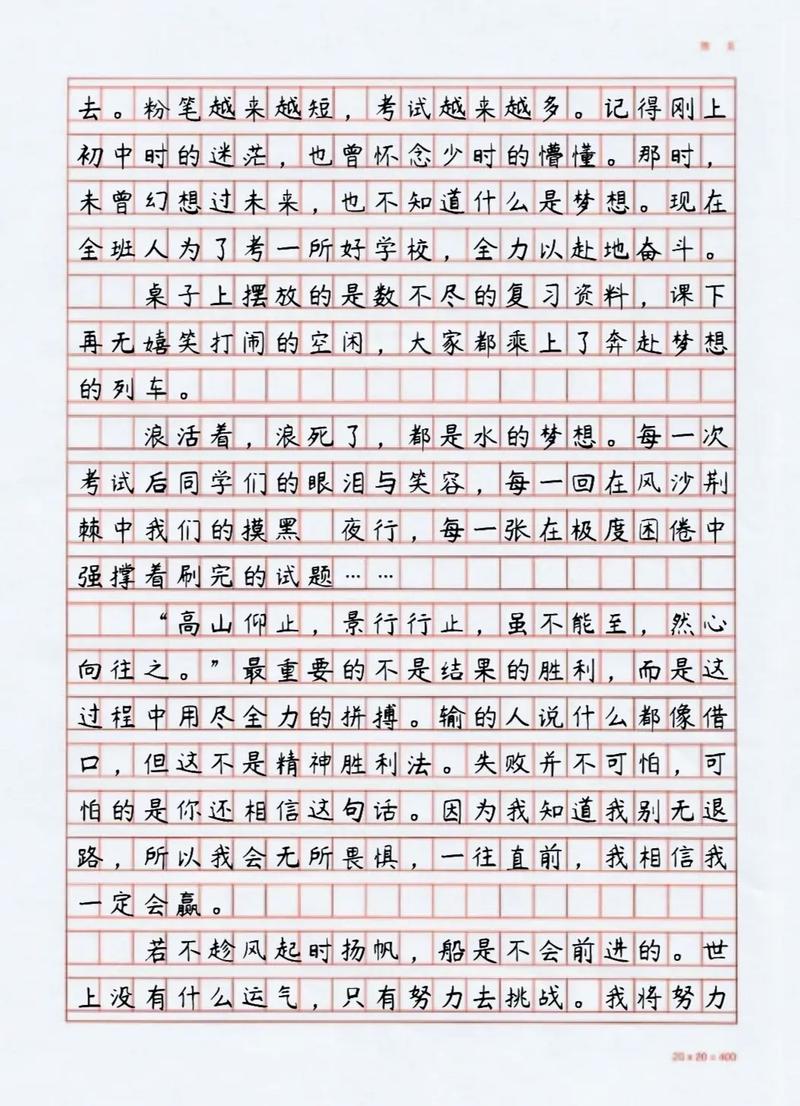 去。粉笔越来越短，考试越来越多。记得刚上
初中时的迷茫，也曾怀念少时的懵懂。那时，
未曾幻想过未来，也不知道什么是梦想。现在
全班人为了考一所好学校，全力以赴地奋斗。
桌子上摆放的是数不尽的复习资料，课下
再无嬉笑打闹的空闲，大家都乘上了奔赴梦想
的列车。
浪活着，浪死了，都是水的梦想。每一次
考试后同学们的眼泪与笑容，每一回在风沙荆
棘中我们的摸黑 夜行，每一张在极度困倦中
强撑着刷完的试题……
“高山仰止，景行行止，虽不能至，然心
向往之。”最重要的不是结果的胜利，而是这
过程中用尽全力的拼搏。输的人说什么都像借
口，但这不是精神胜利法。失败并不可怕，可
怕的是你还相信这句话。因为我知道我别无退
路，所以我会无所畏惧，一往直前，我相信我
一定会赢。
若不趁风起时扬帆，船是不会前进的。世
上没有什么运气，只有努力去挑战。我将努力
20×20=400